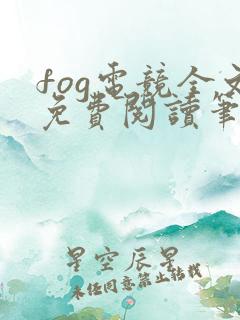 fog電競全文
免費閱讀筆
星空辰星
未经同意禁止转载